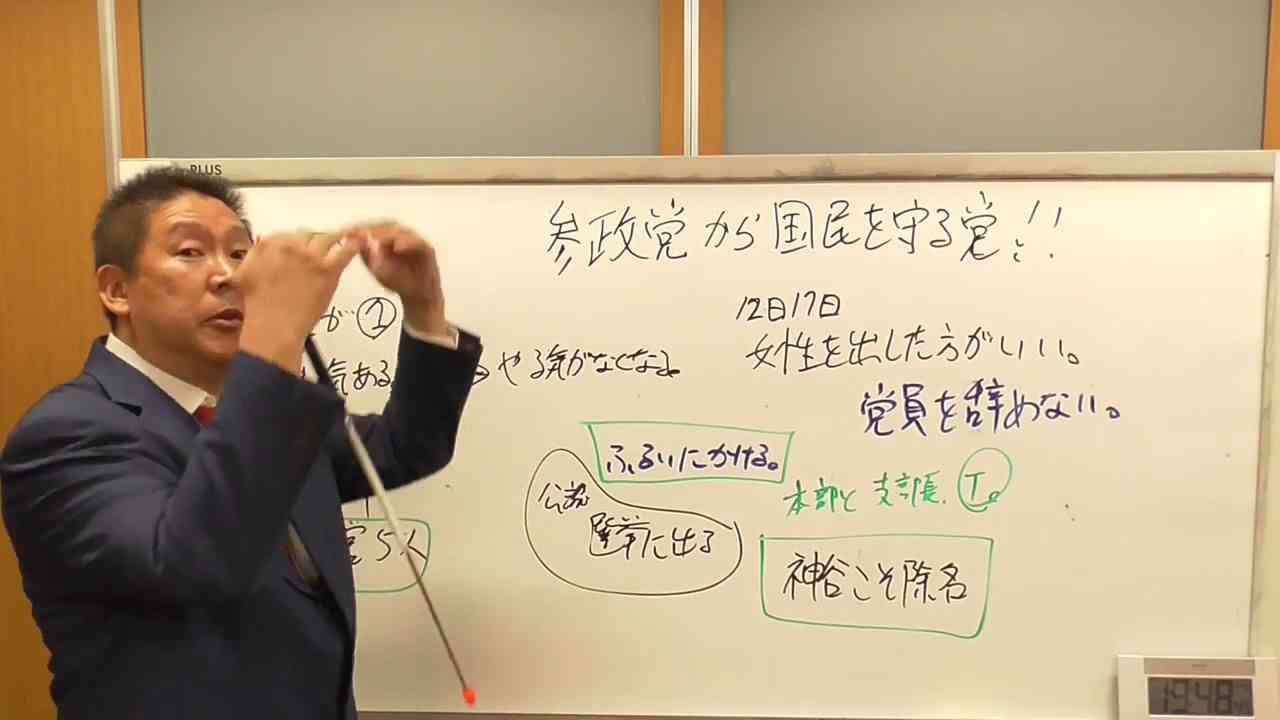 PLUS
参政党から国民を守る党!!
12日17日
が①
女性を出した方がいい。
気ある
やる気がなくなる。
党員を辞めない。
ふるいにかける。
本部と支部長、T。
公認
選挙に出る
党5人
神谷こそ除名
19:48